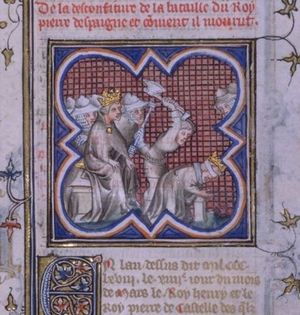 De la desconfiture de la bataille du Roy
pierre despaigne et coment il mourut.
En lan dessus dit mil ccc
lxviii. le xiiii. iour du mois
de Mars le Roy henry et le
Roy pierre de Castelle des qlz